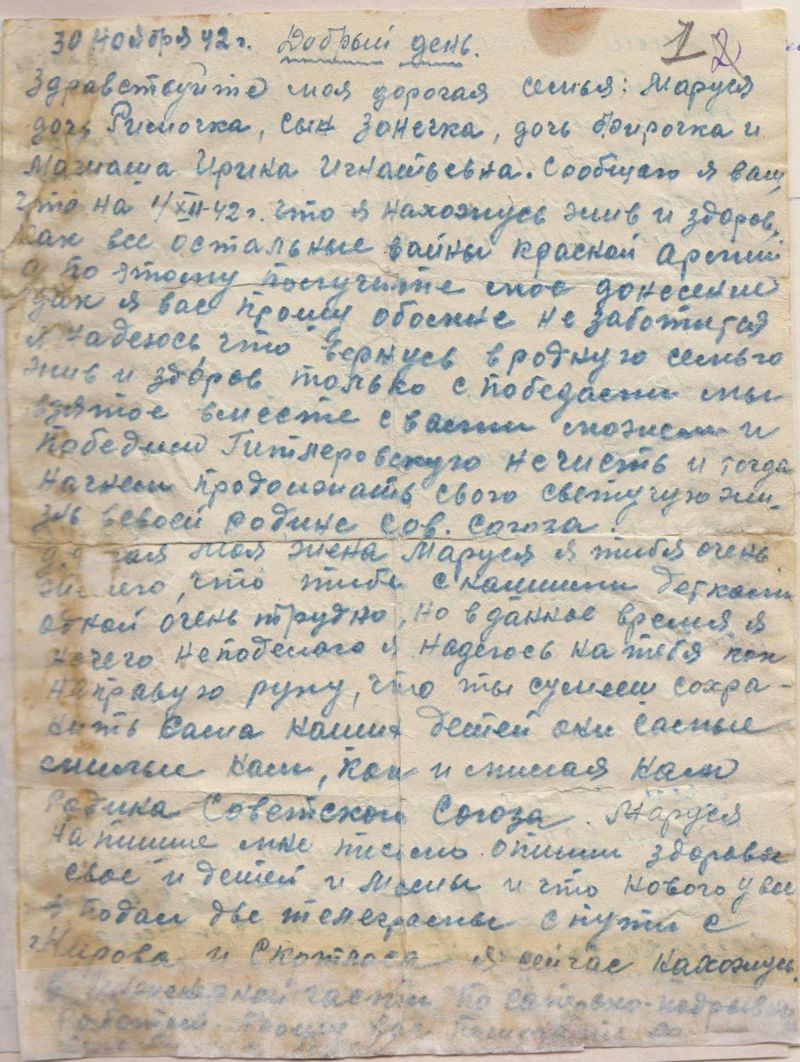 30 Ноября 42 г. Добрый день. 12
Здравствуйте моя дорогая семья: Маруся
дочь Римочка, сын Зонечка, дочь Фирочка и
Мамаша Ирина Игнатьевна. Сообщаю я вам,
что на 1/XII-42 г. что я нахожусь жив и здоров,
как все остальные вайны красной армии
а по этому получите мое донесение
дак я вас прошу обомне не заботится
я надеюсь что вернусь в родную семью
жив и здоров только с победами мы
взятое вместе с вами можем и
победим Гитлеровскую нечисть и тогда
начнем продолжать свою светучую жи-
знь всвоей родине Сов. Союза.
моя жена Маруся я тибя очень
что тибе с нашими детками
одной очень трудно, но в данное время я
нечего неподелаю я надеюсь на тебя как
направую руку, что ты сумееш сохра-
нить наших детей они самые
милые нам, как и милая нам
Родина Советской Союза. Маруся
напиши мне письмо опиши здоровье
свое и детей и Мамы и что нового у вас
я подал две телеграмы с пути с
Кирова и Скотласа я сейчас нахожусь
в Инженерной части по саперно-подрывн
работам.